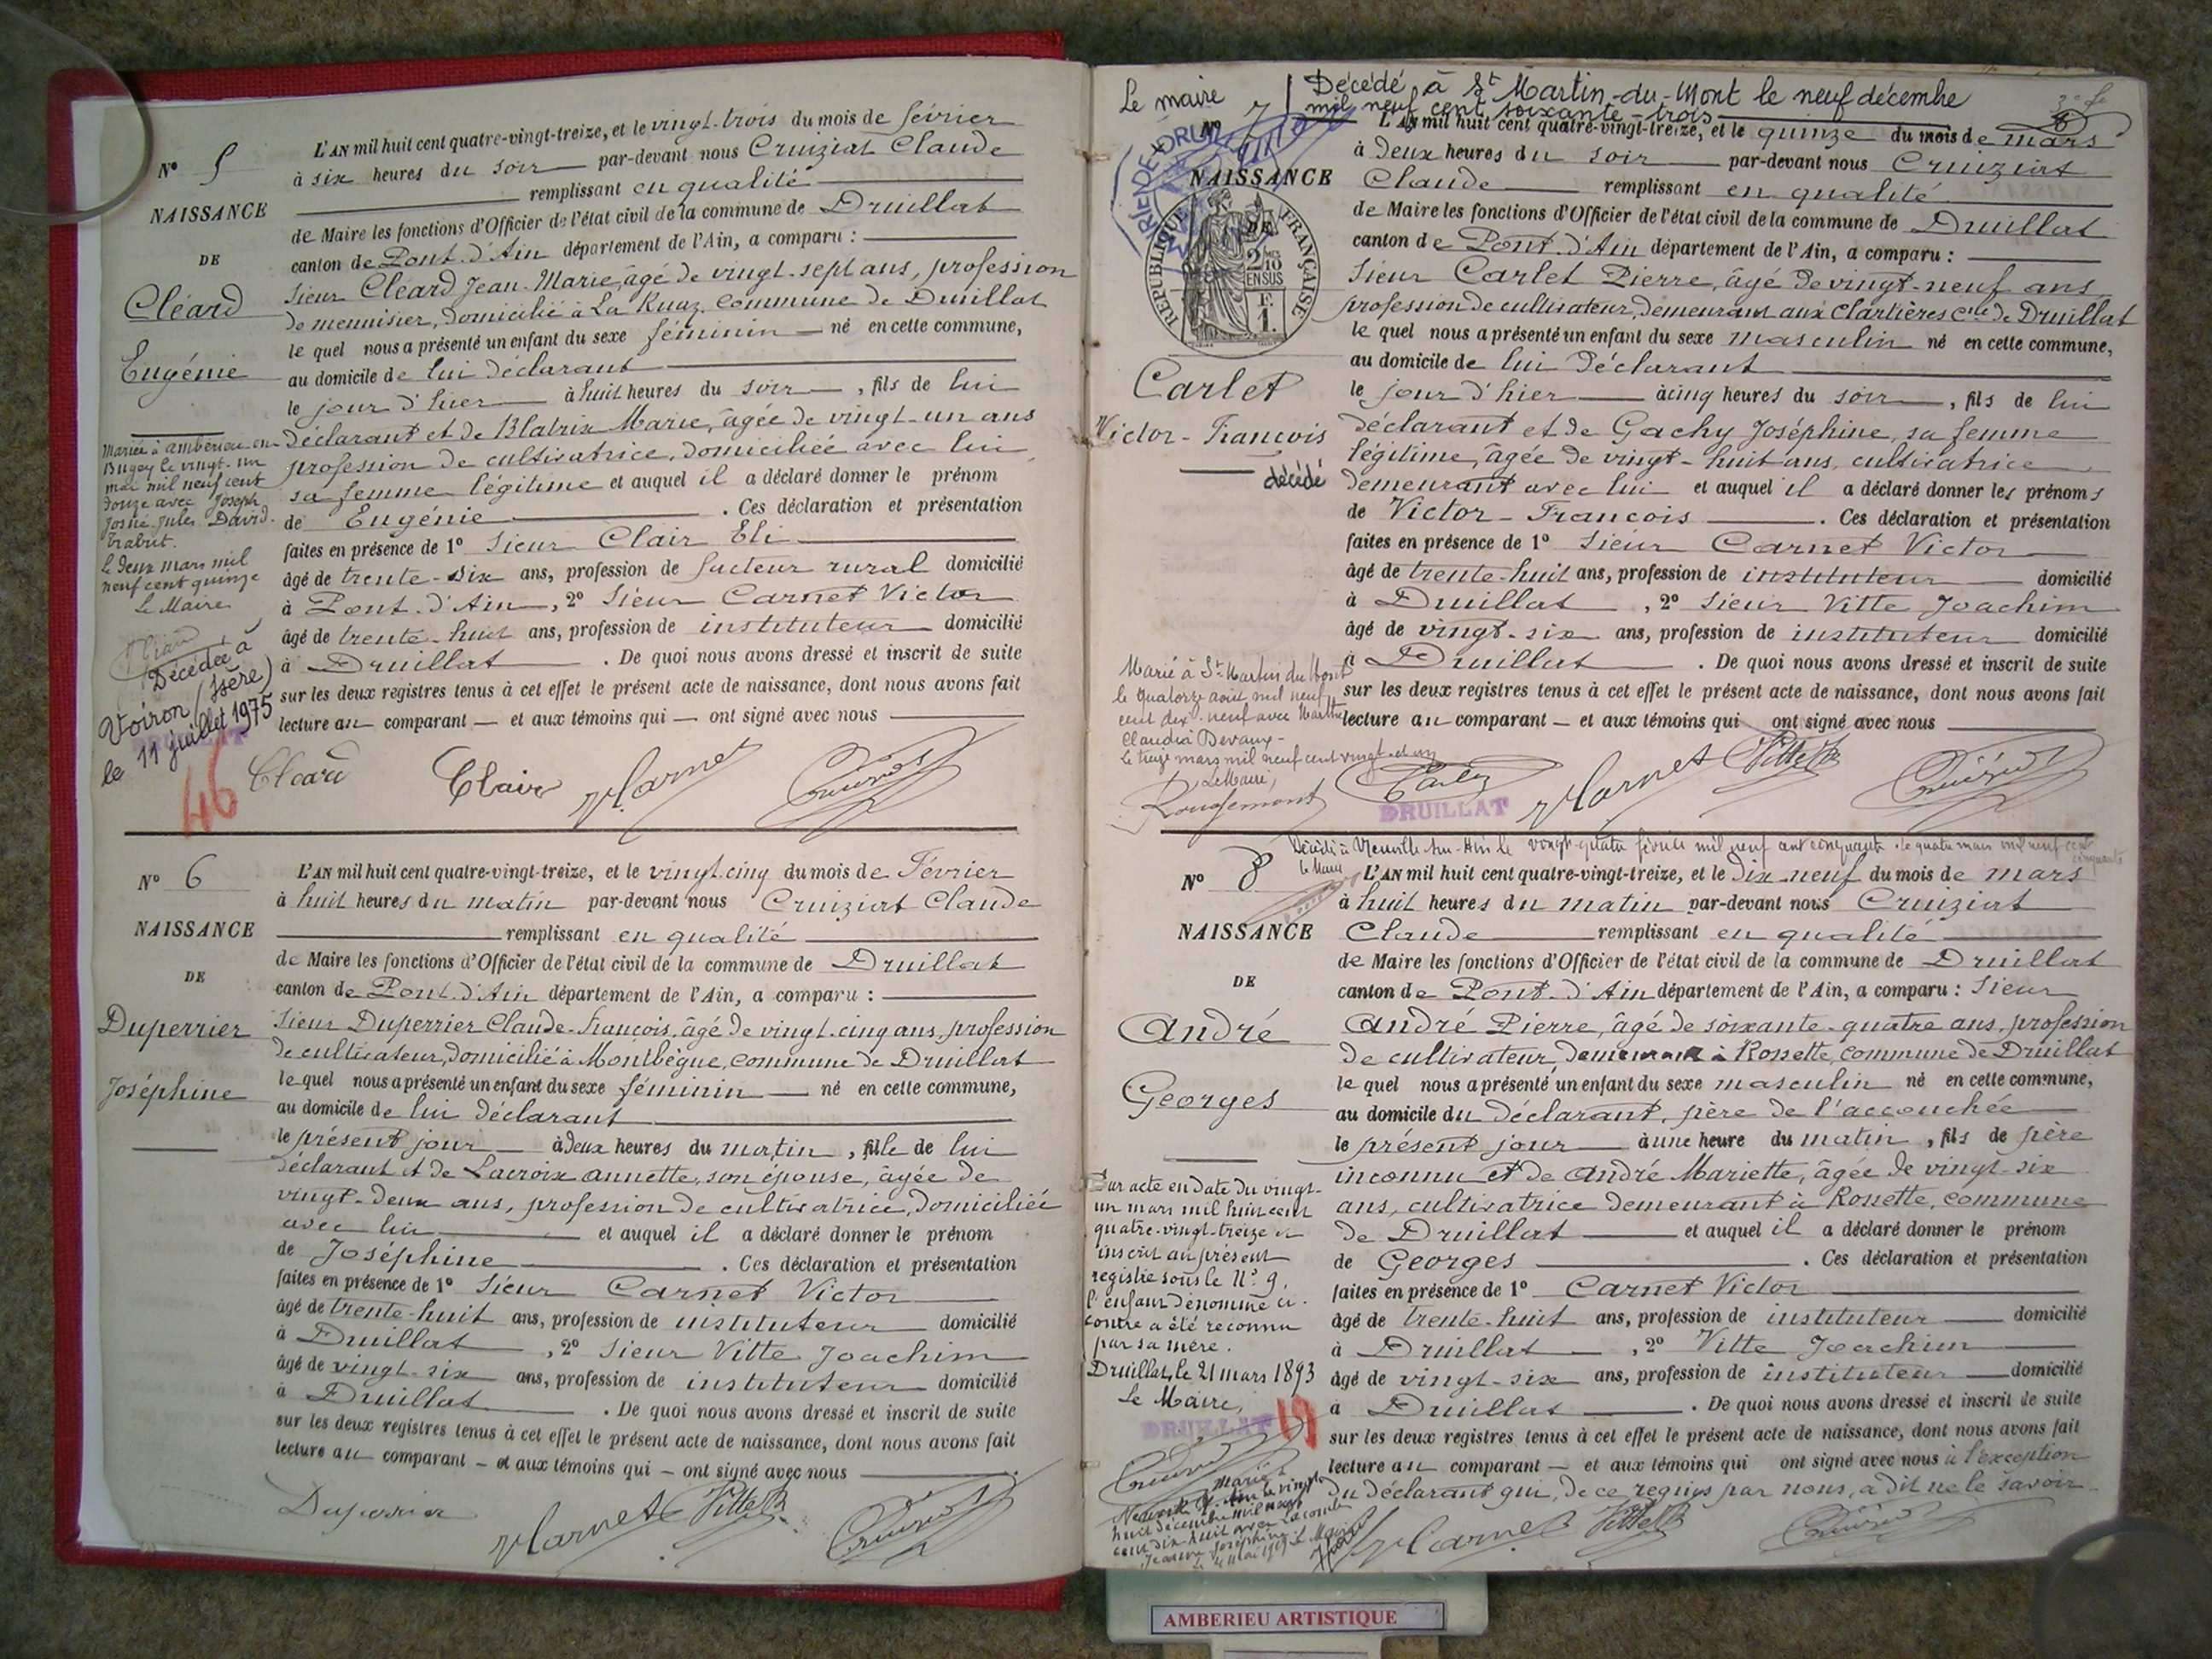 N° 5
NAISSANCE
DE
Cléard
Eugénie
Mariée à Ambérieu en
Bugey le vingt-un
mai mil neuf cent
douze avec Joseph
Josué Jules David
Trabut.
Le deux mars mil
neuf cent quinze
Le Maire
Décédée à
Voiron (Isère)
le 11 juillet 1975
46
L'AN mil huit cent quatre-vingt-treize, et le vingt-trois du mois de février
à six heures du soir par-devant nous Cruiziat Claude
remplissant en qualité
de Maire les fonctions d'Officier de l'état civil de la commune de Druillat
canton de Pont-d'Ain département de l'Ain, a comparu :
Sieur Cléard Jean-Marie, âgé de vingt-sept ans, profession
de menuisier, domicilié à La Ruaz, commune de Druillat
le quel nous a présenté un enfant du sexe féminin né en cette commune,
au domicile de lui déclarant
le jour d'hier à huit heures du soir, fils de lui
déclarant et de Blatrix Marie, âgée de vingt-un ans
profession de cultivatrice, domiciliée avec lui,
sa femme légitime et auquel il a déclaré donner le prénom
de Eugénie. Ces déclaration et présentation
faites en présence de 1° Sieur Clair Eli
âgé de trente-six ans, profession de facteur rural domicilié
à Pont-d'Ain, 2° Sieur Carnet Victor
âgé de trente-huit ans, profession de instituteur domicilié
à Druillat. De quoi nous avons dressé et inscrit de suite
sur les deux registres tenus à cet effet le présent acte de naissance, dont nous avons fait
lecture au comparant et aux témoins qui ont signé avec nous
Cléard Clair VCarnet Cruiziat
N° 6
NAISSANCE
DE
Duperrier
Joséphine
L'AN mil huit cent quatre-vingt-treize, et le vingt-cinq du mois de Février
à huit heures du matin par-devant nous Cruiziat Claude
remplissant en qualité
de Maire les fonctions d'Officier de l'état civil de la commune de Druillat
canton de Pont-d'Ain département de l'Ain, a comparu :
Sieur Duperrier Claude-François, âgé de vingt-cinq ans, profession
de cultivateur, domicilié à Montbègue, commune de Druillat
le quel nous a présenté un enfant du sexe féminin né en cette commune,
au domicile de lui déclarant
le présent jour à deux heures du matin, fille de lui
déclarant et de Lacroix Annette, son épouse, âgée de
vingt-deux ans, profession de cultivatrice, domiciliée
avec lui et auquel il a déclaré donner le prénom
de Joséphine. Ces déclaration et présentation
faites en présence de 1° Sieur Carnet Victor
âgé de trente-huit ans, profession de instituteur domicilié
à Druillat, 2° Sieur Vitte Joachim
âgé de vingt-six ans, profession de instituteur domicilié
à Druillat. De quoi nous avons dressé et inscrit de suite
sur les deux registres tenus à cet effet le présent acte de naissance, dont nous avons fait
lecture au comparant - et aux témoins qui - ont signé avec nous
Duperrier VCarnet Vitte Cruiziat
Le maire
Décédé à St Martin-du-Mont le neuf décembre
mil neuf cent soixante-trois
N° 7
NAISSANCE
DE
RÉPUBLIQUE FRANÇAISE
2/10 EN SUS
F. 1.
Carlet
Victor-François
décédé
Marié à St Martin du Mont
le quatorze août mil neuf
cent dix-neuf avec Marthe
Claudia Devaux-
Le treize mars mil neuf cent vingt-et-un
Le Maire,
Rougemont
L'AN mil huit cent quatre-vingt-treize, et le quinze du mois de mars
à deux heures du soir par-devant nous Cruiziat
Claude remplissant en qualité
de Maire les fonctions d'Officier de l'état civil de la commune de Druillat
canton de Pont-d'Ain département de l'Ain, a comparu :
Sieur Carlet Pierre, âgé de vingt-neuf ans
profession de cultivateur, demeurant aux Clartières cne de Druillat
le quel nous a présenté un enfant du sexe masculin né en cette commune,
au domicile de lui déclarant
le jour d'hier à cinq heures du soir, fils de lui
déclarant et de Gachy Joséphine, sa femme
légitime, âgée de vingt-huit ans, cultivatrice
demeurant avec lui et auquel il a déclaré donner les prénoms
de Victor-François. Ces déclaration et présentation
faites en présence de 1° Sieur Carnet Victor
âgé de trente-huit ans, profession de instituteur domicilié
à Druillat, 2° Sieur Vitte Joachim
âgé de vingt-six ans, profession de instituteur domicilié
à Druillat. De quoi nous avons dressé et inscrit de suite
sur les deux registres tenus à cet effet le présent acte de naissance, dont nous avons fait
lecture au comparant et aux témoins qui ont signé avec nous
Carlet VCarnet Vitte Cruiziat
DRUILLAT
Décédé à Neuville-sur-Ain le vingt-quatre février mil neuf cent cinquante. le quatre mars mil neuf cent
cinquante
Le Maire
N° 8
NAISSANCE
DE
André
Georges
Par acte en date du vingt-
un mars mil huit cent
quatre-vingt-treize et
inscrit au présent
registre sous le N° 9,
l'enfant dénommé ci-
contre a été reconnu
par sa mère.
Druillat, le 21 mars 1893
Le Maire,
DRUILLAT 19
Cruiziat
Marié à
Neuville s/ Ain le vingt
huit décembre mil neuf
cent dix-huit avec Lacombe
Jeanne Joséphine
L'AN mil huit cent quatre-vingt-treize, et le dix-neuf du mois de mars
à huit heures du matin par-devant nous Cruiziat
Claude remplissant en qualité
de Maire les fonctions d'Officier de l'état civil de la commune de Druillat
canton de Pont-d'Ain département de l'Ain, a comparu : Sieur
André Pierre, âgé de soixante-quatre ans, profession
de cultivateur, demeurant à Rossette, commune de Druillat
le quel nous a présenté un enfant du sexe masculin né en cette commune,
au domicile du déclarant, père de l'accouchée
le présent jour à une heure du matin, fils de père
inconnu et de André Mariette, âgée de vingt-six
ans, cultivatrice demeurant à Rossette, commune
de Druillat et auquel il a déclaré donner le prénom
de Georges. Ces déclaration et présentation
faites en présence de 1° Carnet Victor
âgé de trente-huit ans, profession de instituteur domicilié
à Druillat, 2° Vitte Joachim
âgé de vingt-six ans, profession de instituteur domicilié
à Druillat. De quoi nous avons dressé et inscrit de suite
sur les deux registres tenus à cet effet le présent acte de naissance, dont nous avons fait
lecture au comparant - et aux témoins qui ont signé avec nous à l'exception
du déclarant qui, de ce requis par nous, a dit ne le savoir.
VCarnet Vitte Cruiziat
AMBERIEU ARTISTIQUE